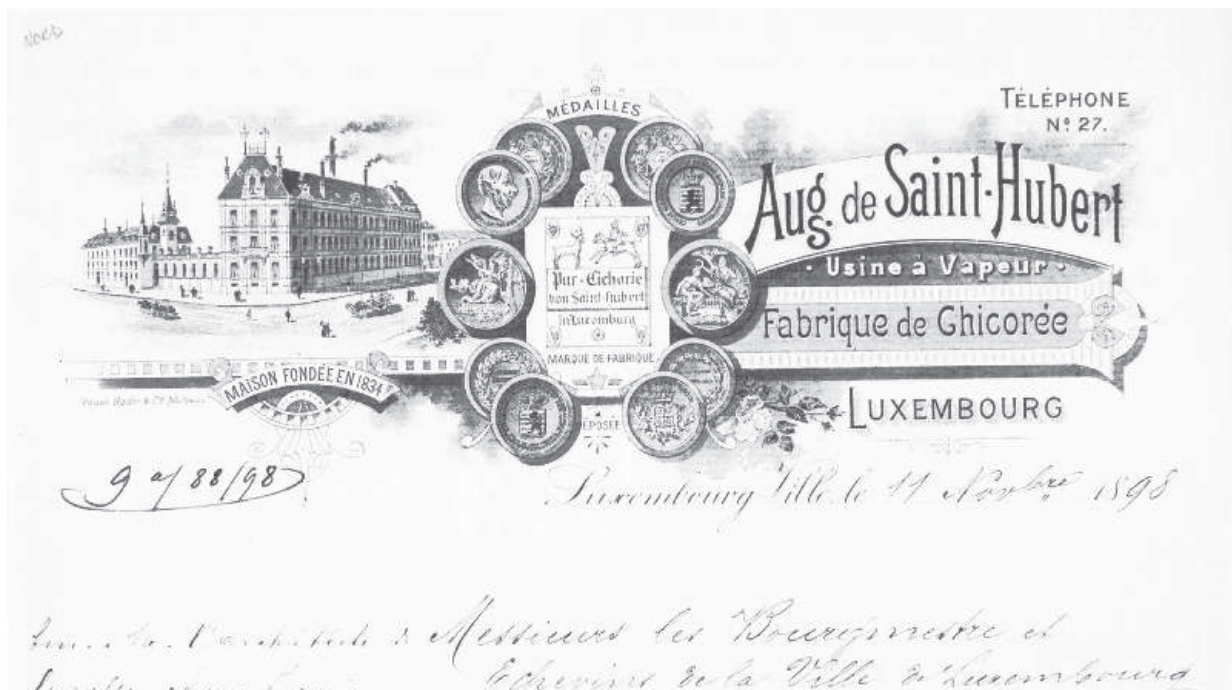 NORD
TÉLÉPHONE
Nº 27.
MÉDAILLES
Aug. de Saint-Hubert
Usine à Vapeur
Fabrique de Chicorée
LUXEMBOURG
Pur-Cichorie
von Saint-Hubert
in Luxemburg
MARQUE DE FABRIQUE
DÉPOSÉE
MAISON FONDÉE EN 1834
9 a/88/98
Luxembourg Ville, le 11 Novbre 1898
l'architecte
Messieurs les Bourgmestre et
Echevins de la Ville de Luxembourg